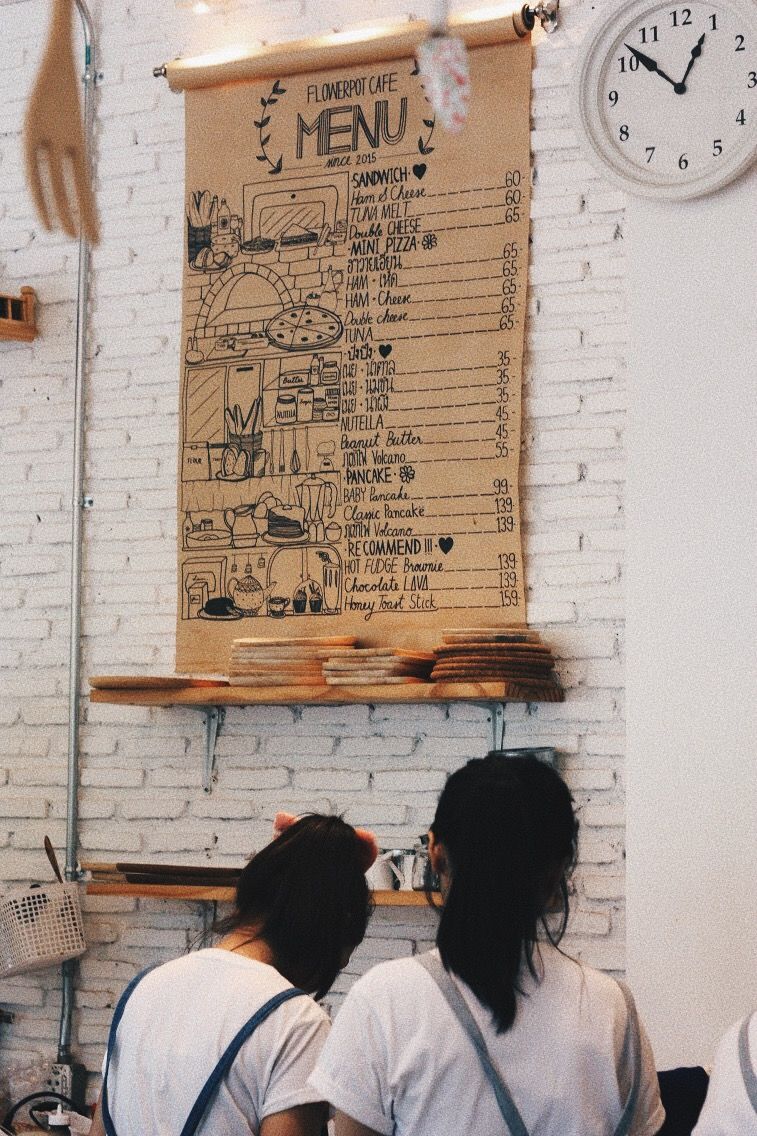 FLOWERPOT CAFE
MENU
since 2015
·SANDWICH·
Ham & Cheese 60.
TUNA MELT 60.
Double CHEESE 65.
·MINI PIZZA·
ฮาวายเอี้ยน 65.
HAM·เห็ด 65.
HAM·Cheese 65.
Double cheese 65.
TUNA 65.
·ปังปิ้ง·
เนย·น้ำตาล 35.
เนย·นมข้น 35.
เนย·น้ำผึ้ง 35.
NUTELLA 45.
Peanut Butter 45.
ภูเขาไฟ Volcano 55.
·PANCAKE·
BABY Pancake 99.
Classic Pancake 139.
ภูเขาไฟ Volcano 139.
·RECOMMEND !!!·
HOT FUDGE Brownie 139.
Chocolate LAVA 139.
Honey Toast Stick 159.
Butter
NUTELLA
FLOUR
12
1
2
3
4
5
6
7
8
9
10
11